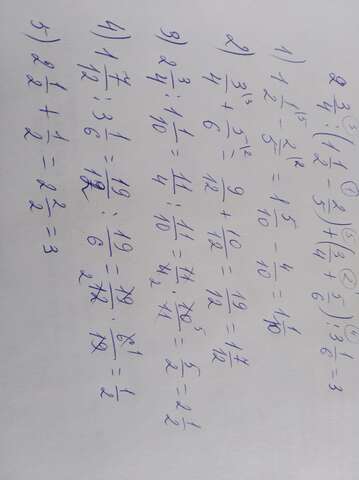 2 3/4 : (1 1/2 - 2/5) + (3/4 + 5/6) : 3 1/6 = 3
1) 1 1/2 - 2/5 = 1 5/10 - 4/10 = 1 1/10
2) 3/4 + 5/6 = 9/12 + 10/12 = 19/12 = 1 7/12
3) 2 3/4 : 1 1/10 = 11/4 : 11/10 = 11/4 · 10/11 = 5/2 = 2 1/2
4) 1 7/12 : 3 1/6 = 19/12 : 19/6 = 19/12 · 6/19 = 1/2
5) 2 1/2 + 1/2 = 2 2/2 = 3